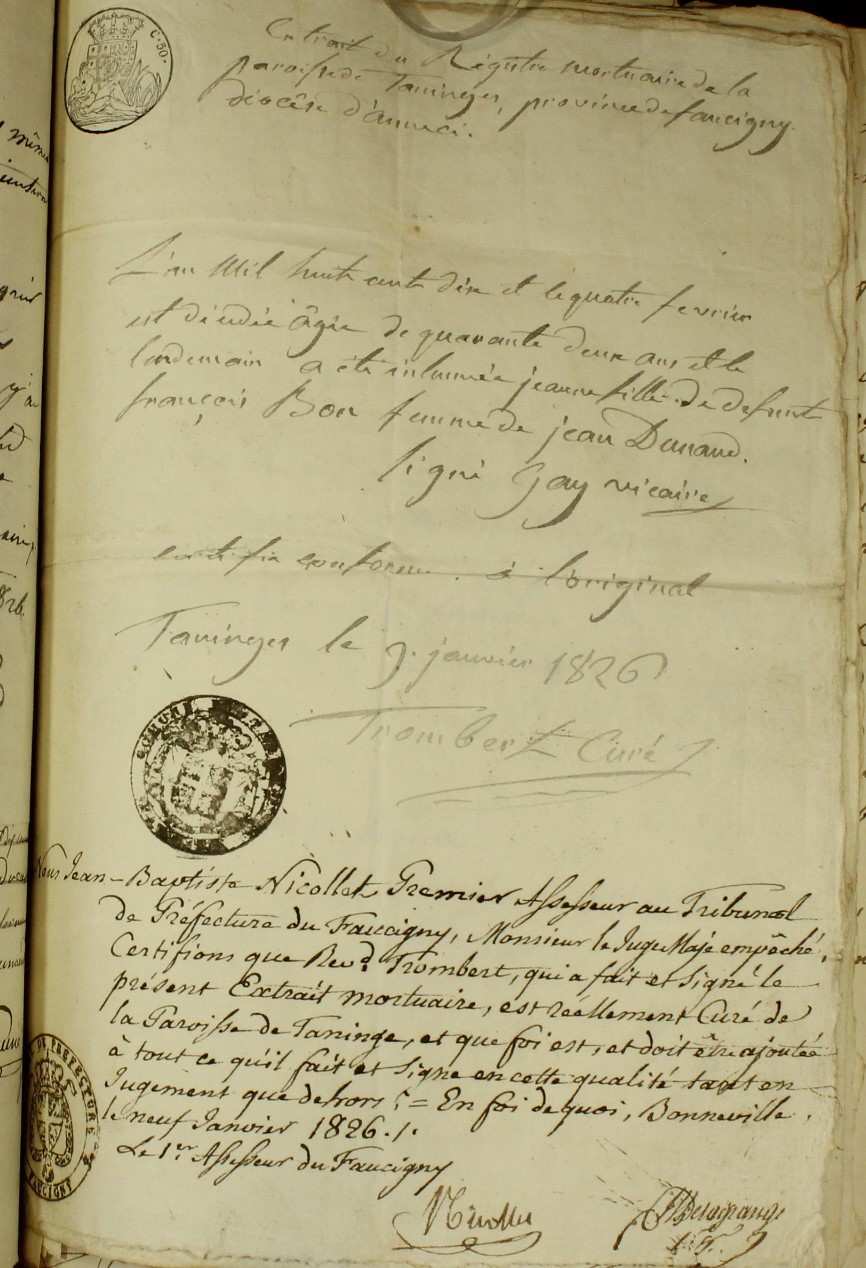 C. 50.
Extrait du Régistre mortuaire de la
paroisse de Taninges, province de faucigny
diocèse d'anneci.
L'an Mil huit cent dix et le quatre fevrier
est décédée âgée de quarante deux ans et le
lendemain a été inhumée jeanne fille de defunt
françois Bon femme de jean Dunand.
signé Gay vicaire
certifié conforme à l'original
Taninges le 9. janvier 1826
Trombert Curé
Nous Jean-Baptiste Nicollet Premier Assesseur au Tribunal
de Préfecture du Faucigny, Monsieur le Juge Maje empêché,
Certifions que Revd. Trombert, qui a fait et Signé le
présent Extrait mortuaire, est réellement Curé de
la Paroisse de Taninge, et que foi est, et doit être ajoutée
à tout ce qu'il fait et Signe en cette qualité tant en
Jugement que dehors = En foi de quoi, Bonneville
le neuf Janvier 1826./.
Le 1er. Assesseur du Faucigny
Nicollet
DE PREFECTURE
FAUCIGNY